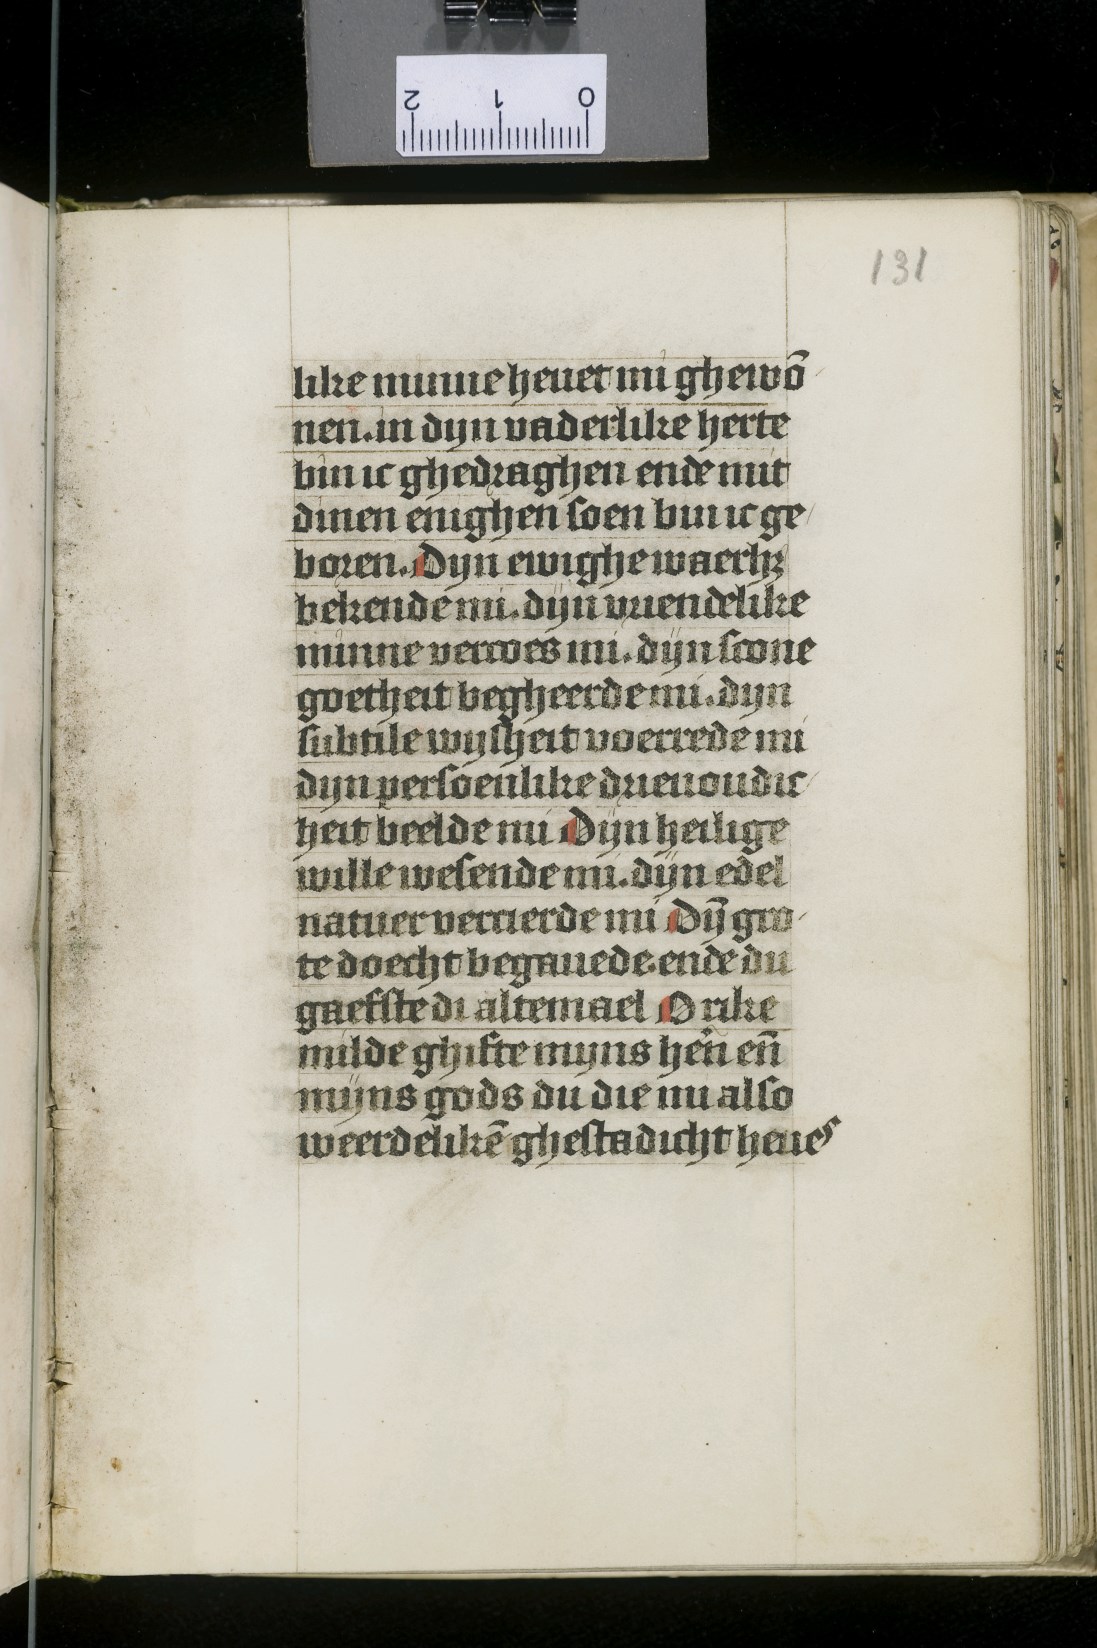 2 1 0
131
like minne heuet mi ghewō
nen. in dyn vaderlike herte
bin ic ghedraghen ende mit
dinen enighen soen bin ic ge
boren. Dyn ewighe waerhꝫ
bekende mi. dyn vriendelike
minne vercoes mi. dyn scone
goetheit begheerde mi. dyn
subtile wysheit voerrede mi
dyn persoenlike drieuoudic
heit beelde mi Dyn heilige
wille wesende mi. dyn edel
natuer vercierde mi Dȳ gro
te doecht begauede. ende du
gaefste di altemael O rike
milde ghifte myns hẽn eñ
myns gods du die mi also
weerdelikē ghestadicht heues